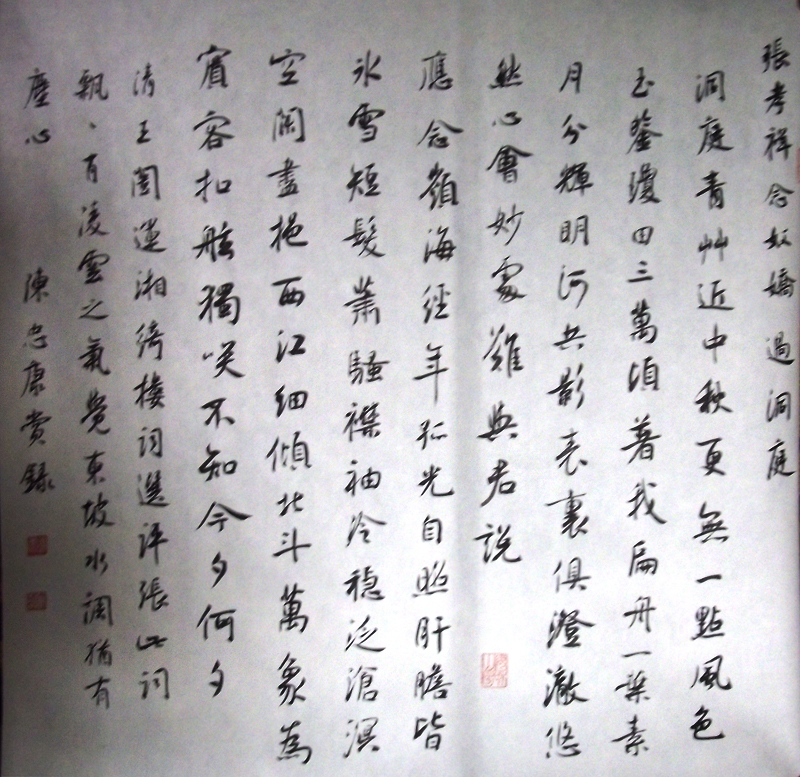 張孝祥念奴嬌過洞庭
洞庭青艸近中秋更無一點風色
玉鑒瓊田三萬頃著我扁舟一葉素
月分輝明河共影表裏俱澄澈悠
然心會妙處難與君說
應念嶺海經年孤光自照肝膽皆
冰雪短髮蕭騷襟袖冷穩泛滄溟
空闊盡挹西江細傾北斗萬象為
賓客扣舷獨笑不知今夕何夕
清王闓運湘綺樓詞選評張此詞
飄飄有淩雲之氣覺東坡水調猶有
塵心 陳忠康賞錄